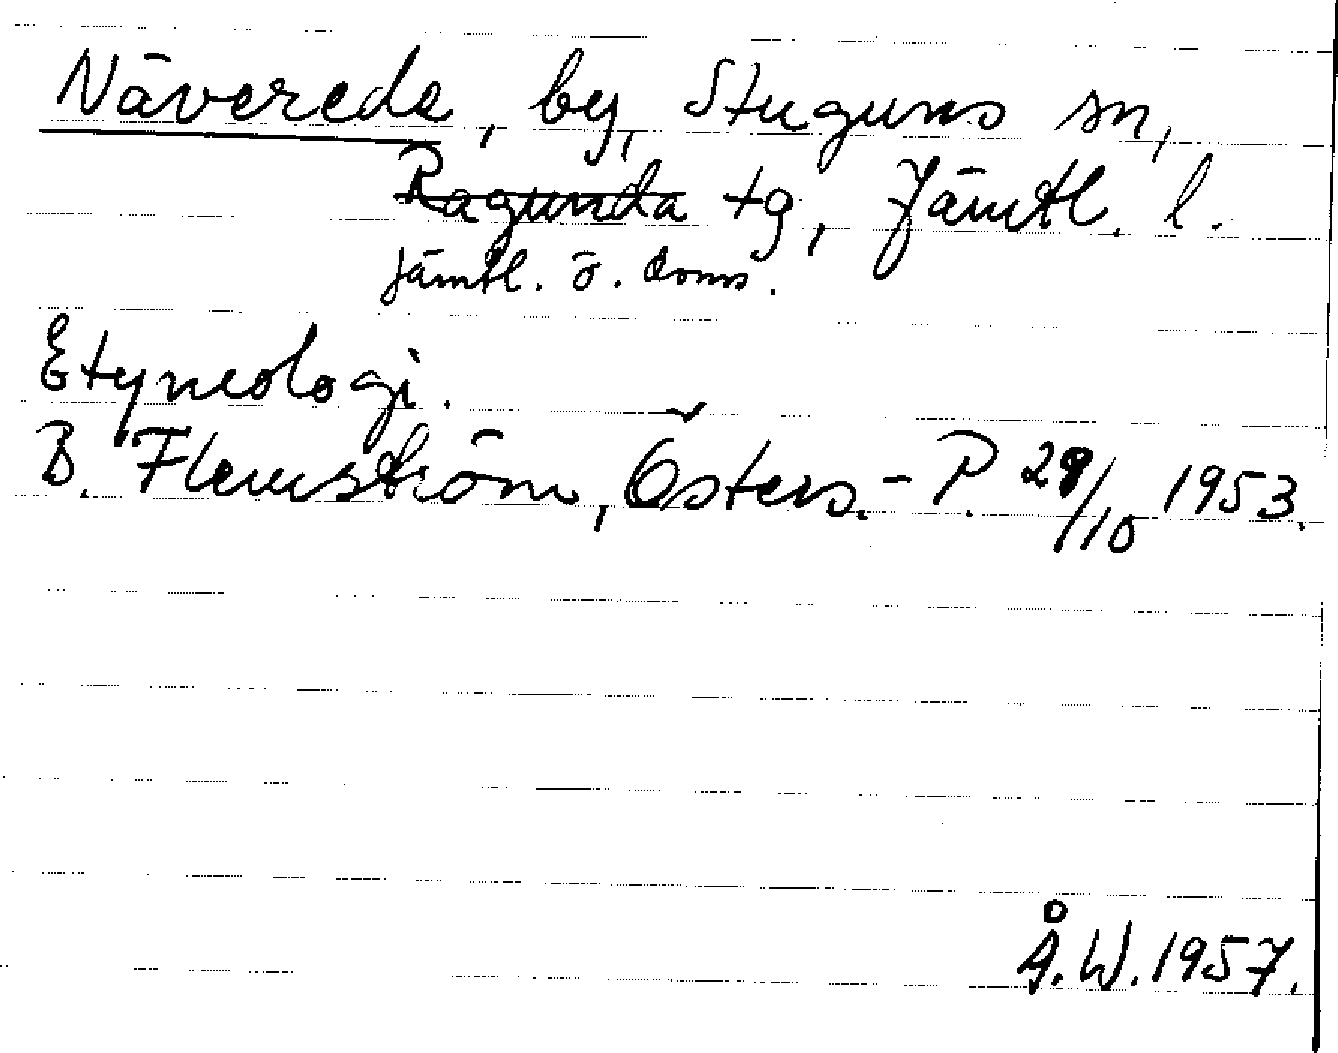 Näverede, by, Stuguns sn,
Ragunda tg, Jämtl. l.
Jämtl. ö. doms.
Etymologi.
B. Flemström, Östers.-P. 28/10 1953.
Å.W. 1957.